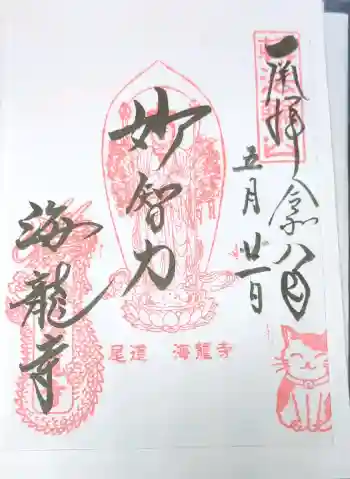 奉拝
令八年
五月廿一日
妙智力
海龍寺
尾道 海龍寺